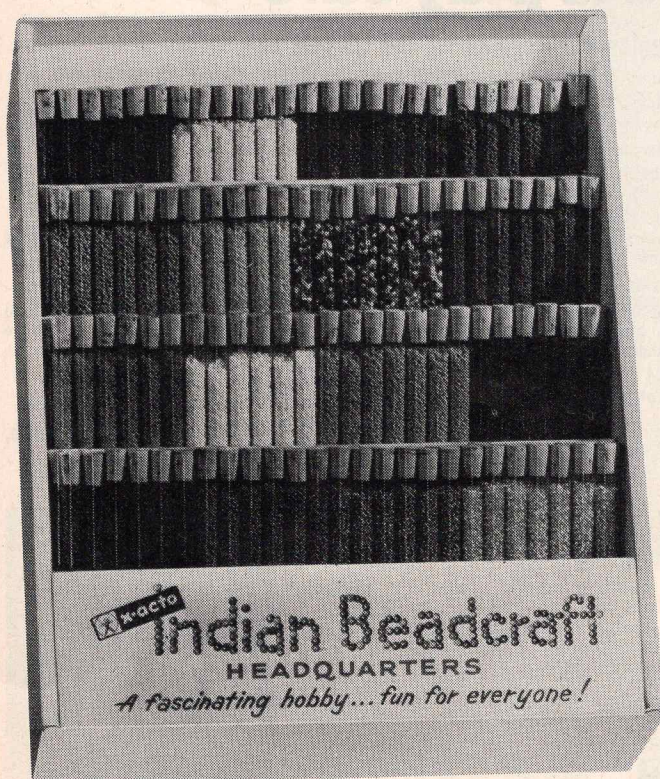 x-acto
Indian Beadcraft
HEADQUARTERS
A fascinating hobby... fun for everyone!